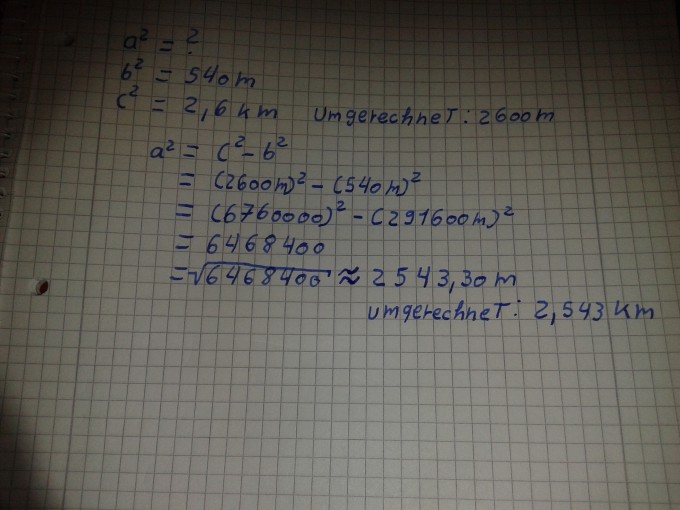 a² = ?
b² = 540m
c² = 2,6 km umgerechnet: 2600m
a² = c² - b²
= (2600m)² - (540m)²
= (6760000)² - (291600m)²
= 6468400
= √6468400 ≈ 2543,30m
umgerechnet: 2,543 km